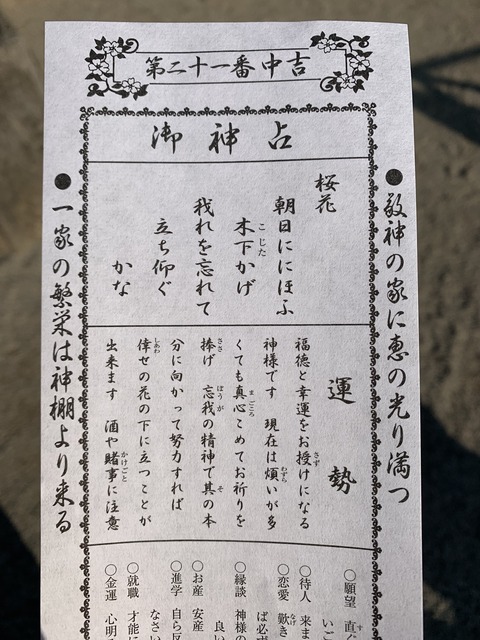 第二十一番 中吉
御神占
●敬神の家に恵の光り満つ
桜花
朝日ににほふ
木下かげ
こじた
我れを忘れて
立ち仰ぐ
かな
運勢
福徳と幸運をお授けになる
さず
神様です 現在は煩いが多
わずら
くても真心こめてお祈りを
まごころ
捧げ 忘我の精神で其の本
ささ ぼうが そ
分に向かって努力すれば
倖せの花の下に立つことが
しあわ
出来ます 酒や賭事に注意
かけごと
〇願望 直
〇待人 来ま
〇恋愛 歎き
なげ
ば必
〇縁談 神様の
良い
〇お産 安産
〇進学 自ら反
なさい
〇就職 才能に
〇金運 心明
●一家の繁栄は神棚より来る